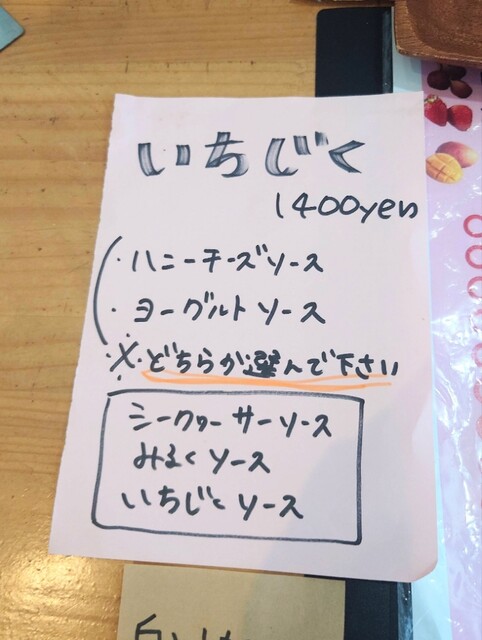 いちじく
1400yen
・ハニーチーズソース
・ヨーグルトソース
※どちらか選んで下さい
シークヮーサーソース
みるくソース
いちじくソース